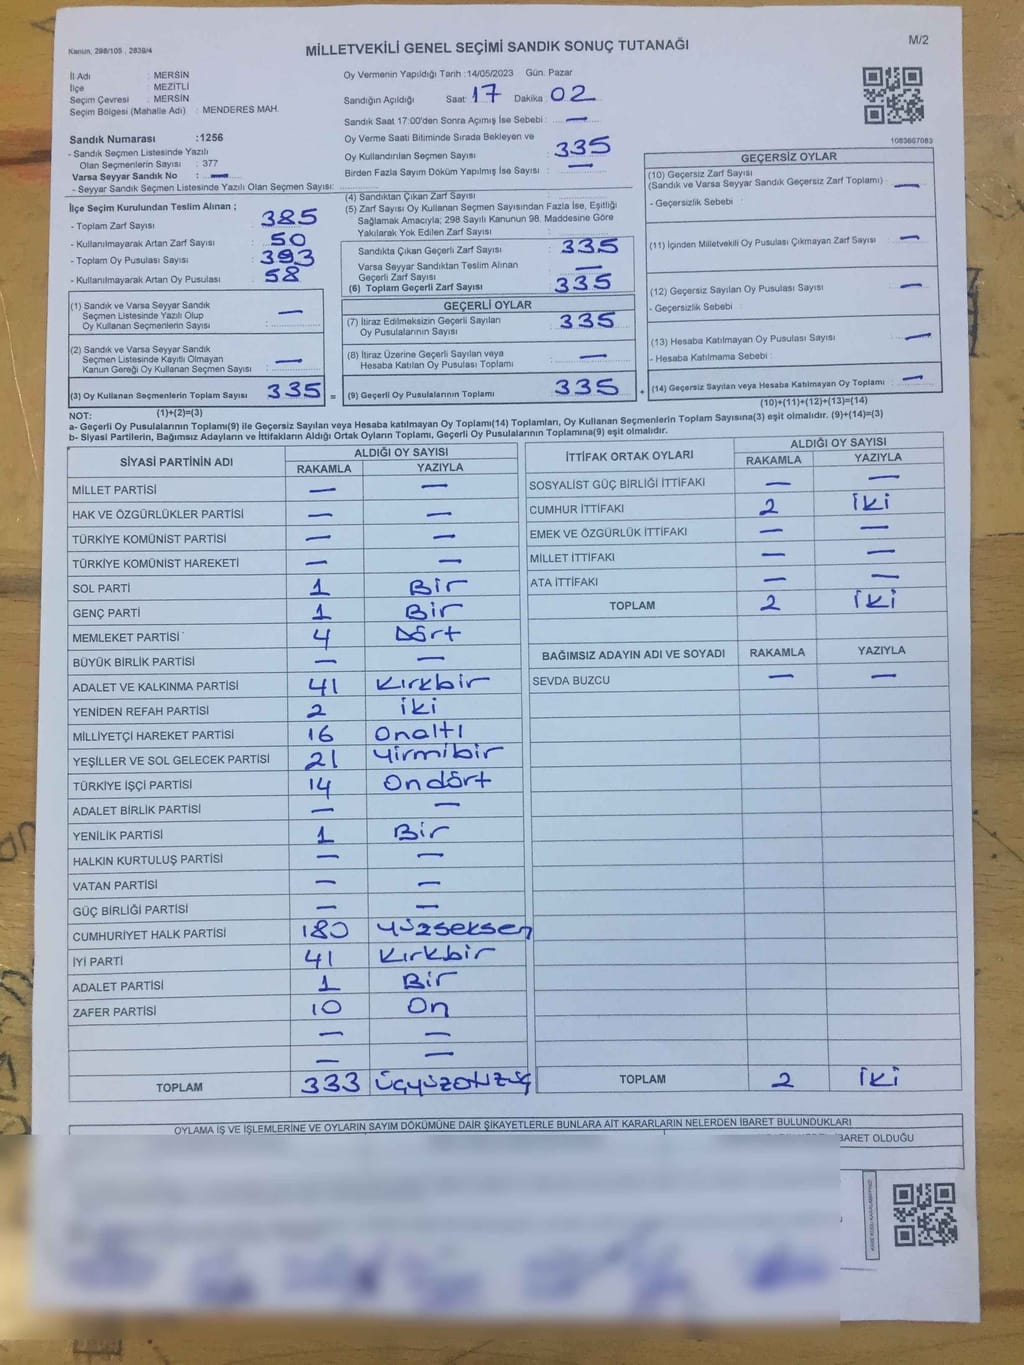 Kanun, 298/105 , 2839/4
MİLLETVEKİLİ GENEL SEÇİMİ SANDIK SONUÇ TUTANAĞI
M/2
İl Adı : MERSİN
İlçe : MEZİTLİ
Seçim Çevresi : MERSİN
Seçim Bölgesi (Mahalle Adı) : MENDERES MAH.
Sandık Numarası :1256
- Sandık Seçmen Listesinde Yazılı
Olan Seçmenlerin Sayısı : 377
Varsa Seyyar Sandık No : —
- Seyyar Sandık Seçmen Listesinde Yazılı Olan Seçmen Sayısı:
Oy Vermenin Yapıldığı Tarih :14/05/2023 Gün. Pazar
Sandığın Açıldığı Saat 17 Dakika 02
Sandık Saat 17:00'den Sonra Açımış İse Sebebi : —
Oy Verme Saati Bitiminde Sırada Bekleyen ve
Oy Kullandırılan Seçmen Sayısı : 335
Birden Fazla Sayım Döküm Yapılmış İse Sayısı : —
1083667083
İlçe Seçim Kurulundan Teslim Alınan ;
- Toplam Zarf Sayısı : 385
- Kullanılmayarak Artan Zarf Sayısı : 50
- Toplam Oy Pusulası Sayısı : 393
- Kullanılmayarak Artan Oy Pusulası : 58
(1) Sandık ve Varsa Seyyar Sandık
Seçmen Listesinde Yazılı Olup
Oy Kullanan Seçmenlerin Sayısı : —
(2) Sandık ve Varsa Seyyar Sandık
Seçmen Listesinde Kayıtlı Olmayan
Kanun Gereği Oy Kullanan Seçmen Sayısı : —
(3) Oy Kullanan Seçmenlerin Toplam Sayısı 335 =
(1)+(2)=(3)
(4) Sandıktan Çıkan Zarf Sayısı :
(5) Zarf Sayısı Oy Kullanan Seçmen Sayısından Fazla İse, Eşitliği
Sağlamak Amacıyla; 298 Sayılı Kanunun 98. Maddesine Göre
Yakılarak Yok Edilen Zarf Sayısı :
Sandıkta Çıkan Geçerli Zarf Sayısı : 335
Varsa Seyyar Sandıktan Teslim Alınan
Geçerli Zarf Sayısı : —
(6) Toplam Geçerli Zarf Sayısı : 335
GEÇERLİ OYLAR
(7) İtiraz Edilmeksizin Geçerli Sayılan
Oy Pusulalarının Sayısı : 335
(8) İtiraz Üzerine Geçerli Sayılan veya
Hesaba Katılan Oy Pusulası Toplamı : —
(9) Geçerli Oy Pusulalarının Toplamı : 335 +
GEÇERSİZ OYLAR
(10) Geçersiz Zarf Sayısı
(Sandık ve Varsa Seyyar Sandık Geçersiz Zarf Toplamı) : —
- Geçersizlik Sebebi :
(11) İçinden Milletvekili Oy Pusulası Çıkmayan Zarf Sayısı : —
(12) Geçersiz Sayılan Oy Pusulası Sayısı : —
- Geçersizlik Sebebi :
(13) Hesaba Katılmayan Oy Pusulası Sayısı : —
- Hesaba Katılmama Sebebi :
(14) Geçersiz Sayılan veya Hesaba Katılmayan Oy Toplamı : —
(10)+(11)+(12)+(13)=(14)
NOT:
a- Geçerli Oy Pusulalarının Toplamı(9) ile Geçersiz Sayılan veya Hesaba katılmayan Oy Toplamı(14) Toplamları, Oy Kullanan Seçmenlerin Toplam Sayısına(3) eşit olmalıdır. (9)+(14)=(3)
b- Siyasi Partilerin, Bağımsız Adayların ve İttifakların Aldığı Ortak Oyların Toplamı, Geçerli Oy Pusulalarının Toplamına(9) eşit olmalıdır.
SİYASİ PARTİNİN ADI ALDIĞI OY SAYISI
RAKAMLA YAZIYLA
MİLLET PARTİSİ — —
HAK VE ÖZGÜRLÜKLER PARTİSİ — —
TÜRKİYE KOMÜNİST PARTİSİ — —
TÜRKİYE KOMÜNİST HAREKETİ — —
SOL PARTİ 1 Bir
GENÇ PARTİ 1 Bir
MEMLEKET PARTİSİ 4 Dört
BÜYÜK BİRLİK PARTİSİ — —
ADALET VE KALKINMA PARTİSİ 41 Kırkbir
YENİDEN REFAH PARTİSİ 2 iki
MİLLİYETÇİ HAREKET PARTİSİ 16 Onaltı
YEŞİLLER VE SOL GELECEK PARTİSİ 21 Yirmibir
TÜRKİYE İŞÇİ PARTİSİ 14 Ondört
ADALET BİRLİK PARTİSİ — —
YENİLİK PARTİSİ 1 Bir
HALKIN KURTULUŞ PARTİSİ — —
VATAN PARTİSİ — —
GÜÇ BİRLİĞİ PARTİSİ — —
CUMHURİYET HALK PARTİSİ 180 Yüzseksen
İYİ PARTİ 41 Kırkbir
ADALET PARTİSİ 1 Bir
ZAFER PARTİSİ 10 On
— —
— —
TOPLAM 333 üçyüzotuzüç
İTTİFAK ORTAK OYLARI ALDIĞI OY SAYISI
RAKAMLA YAZIYLA
SOSYALİST GÜÇ BİRLİĞİ İTTİFAKI — —
CUMHUR İTTİFAKI 2 İki
EMEK VE ÖZGÜRLÜK İTTİFAKI — —
MİLLET İTTİFAKI — —
ATA İTTİFAKI — —
TOPLAM 2 İki
BAĞIMSIZ ADAYIN ADI VE SOYADI RAKAMLA YAZIYLA
SEVDA BUZCU — —
TOPLAM 2 İki
OYLAMA İŞ VE İŞLEMLERİNE VE OYLARIN SAYIM DÖKÜMÜNE DAİR ŞİKAYETLERLE BUNLARA AİT KARARLARIN NELERDEN İBARET BULUNDUKLARI
BARET OLDUĞU